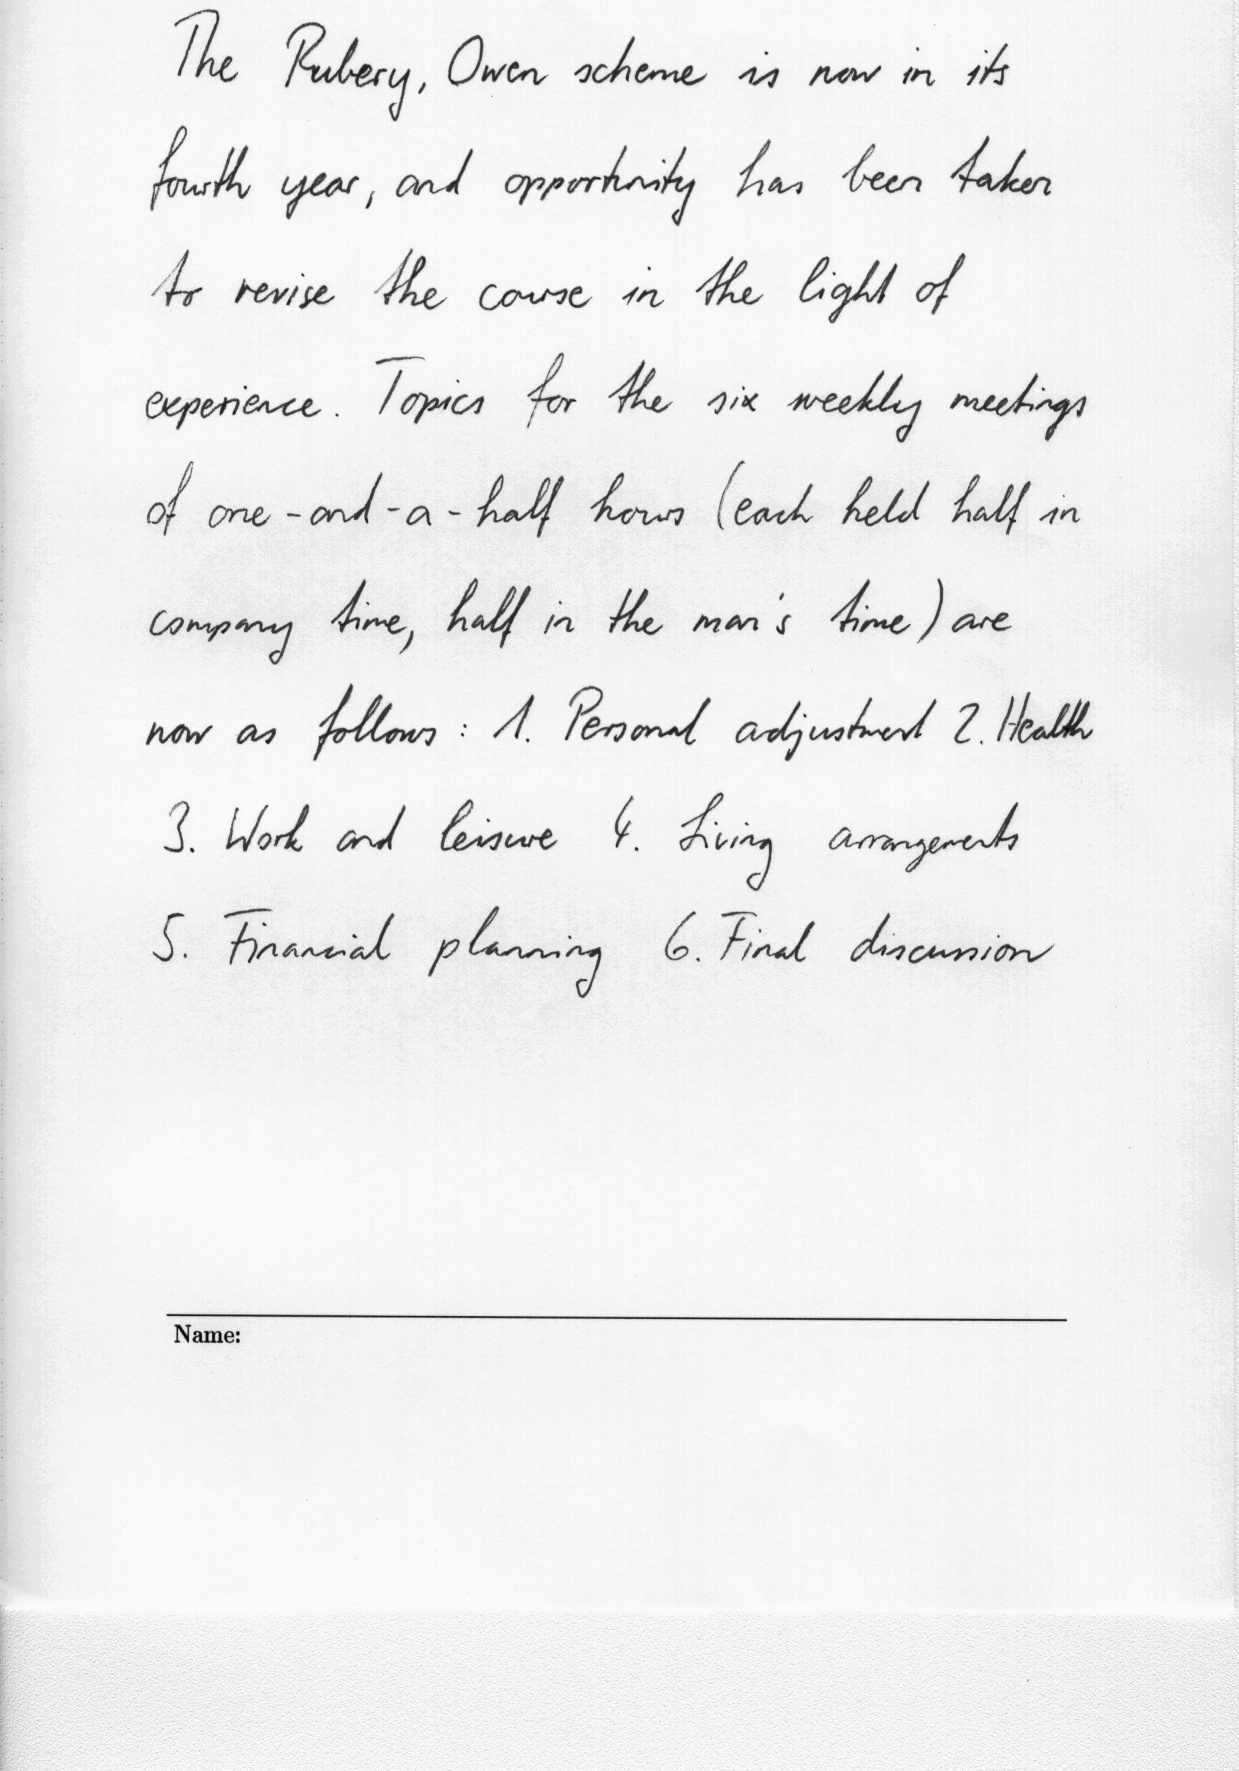 The Rubery, Owen scheme is now in its
fourth year, and opportunity has been taken
to revise the course in the light of
experience. Topics for the six weekly meetings
of one-and-a-half hours (each held half in
company time, half in the man's time) are
now as follows: 1. Personal adjustment 2. Health
3. Work and leisure 4. Living arrangements
5. Financial planning 6. Final discussion
Name: